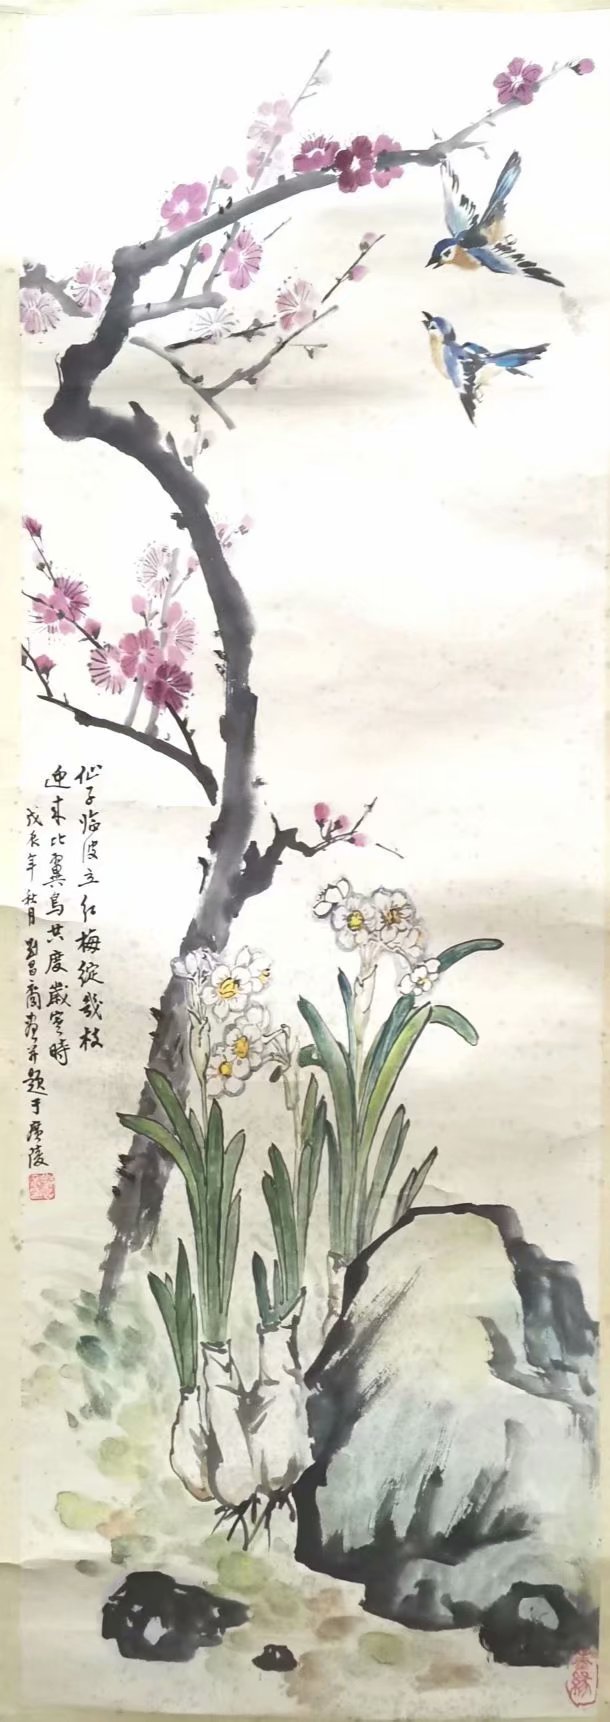 仙子临波立红梅绽几枝
迎来比翼鸟共度岁寒时
戊辰年秋月刘昌裔画并题于广陵